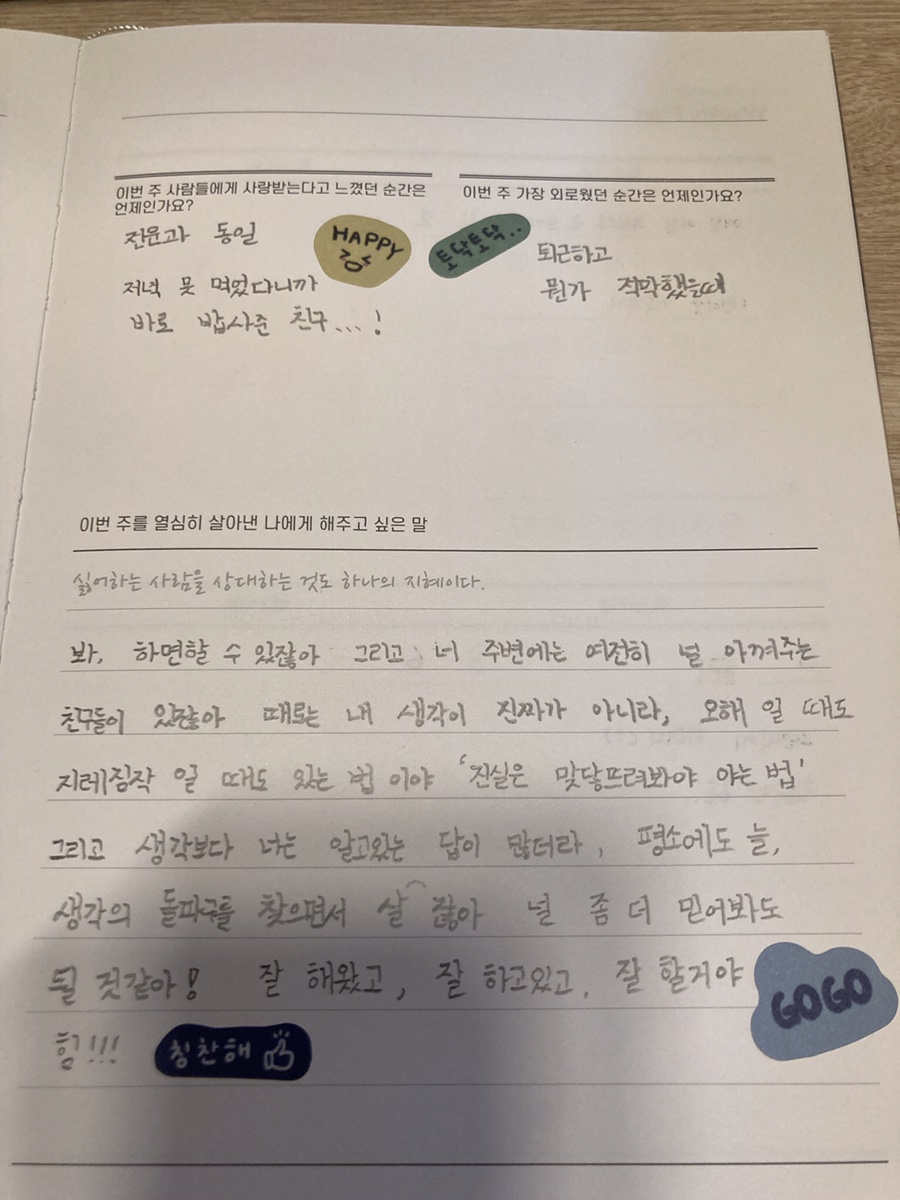 이번 주 사람들에게 사랑받는다고 느꼈던 순간은
언제인가요?
전문과 동일
HAPPY
저녁 못 먹었다니까
바로 밥사준 친구...!
이번 주 가장 외로웠던 순간은 언제인가요?
토닥토닥..
퇴근하고
뭔가 적막했을때
이번 주를 열심히 살아낸 나에게 해주고 싶은 말
싫어하는 사람을 상대하는 것도 하나의 지혜이다.
봐, 하면할 수 있잖아 그리고 너 주변에는 여전히 널 아껴주는
친구들이 있잖아 때로는 내 생각이 진짜가 아니라, 오해 일 때도
지레짐작 일 때도 있는 법 이야 '진실은 맞닿뜨려봐야 아는 법'
그리고 생각보다 너는 알고있는 답이 많더라, 평소에도 늘,
생각의 돌파구를 찾으면서 살잖아 널 좀 더 믿어봐도
될 것같아! 잘 해왔고, 잘 하고있고, 잘 할거야
GOGO
힘!!!
칭찬해